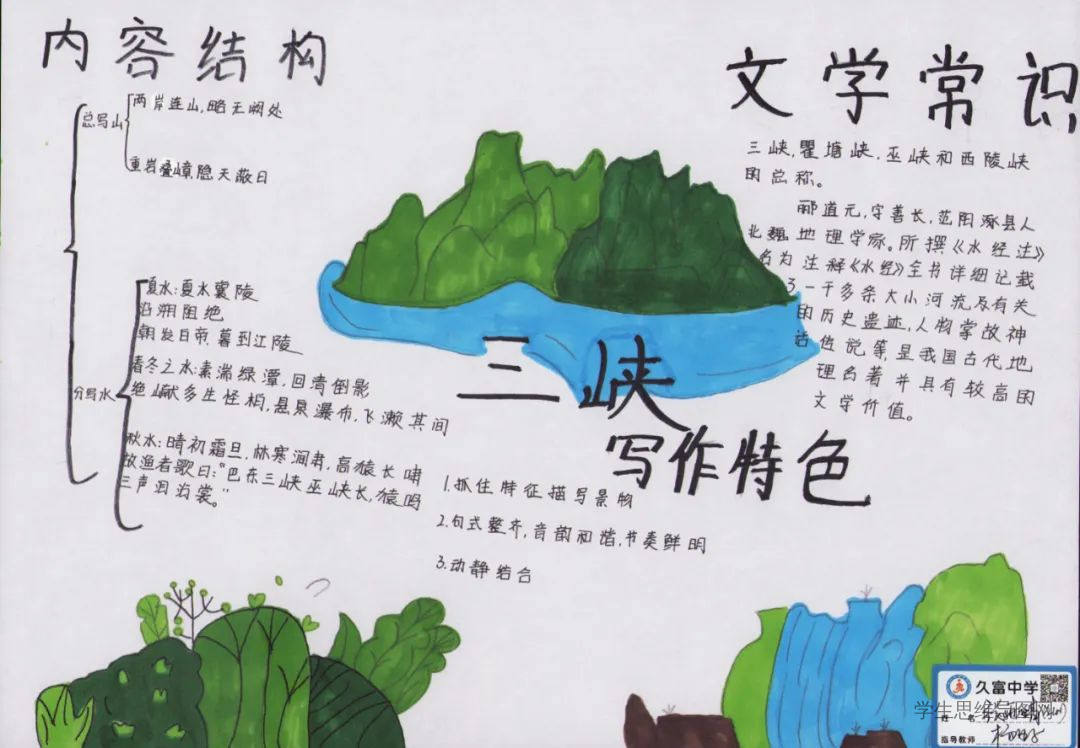 内容结构
总写山
两岸连山,略无阙处
重岩叠嶂,隐天蔽日
分写水
夏水:夏水襄陵
沿溯阻绝
朝发白帝,暮到江陵
春冬之水:素湍绿潭,回清倒影
绝巘多生怪柏,悬泉瀑布,飞漱其间
秋水:晴初霜旦,林寒涧肃,高猿长啸
故渔者歌曰:“巴东三峡巫峡长,猿鸣
三声泪沾裳。”
文学常识
三峡,瞿塘峡,巫峡和西陵峡
的总称。
郦道元,字善长,范阳涿县人
北魏地理学家。所撰《水经注》
名为注释《水经》全书详细记载
了一千多条大小河流及有关
的历史遗迹,人物掌故神
话传说等,是我国古代地
理名著并具有较高的
文学价值。
三峡
写作特色
1.抓住特征描写景物
2.句式整齐,音韵和谐,节奏鲜明
3.动静结合
久富中学
姓名
指导教师
学生思维导图网